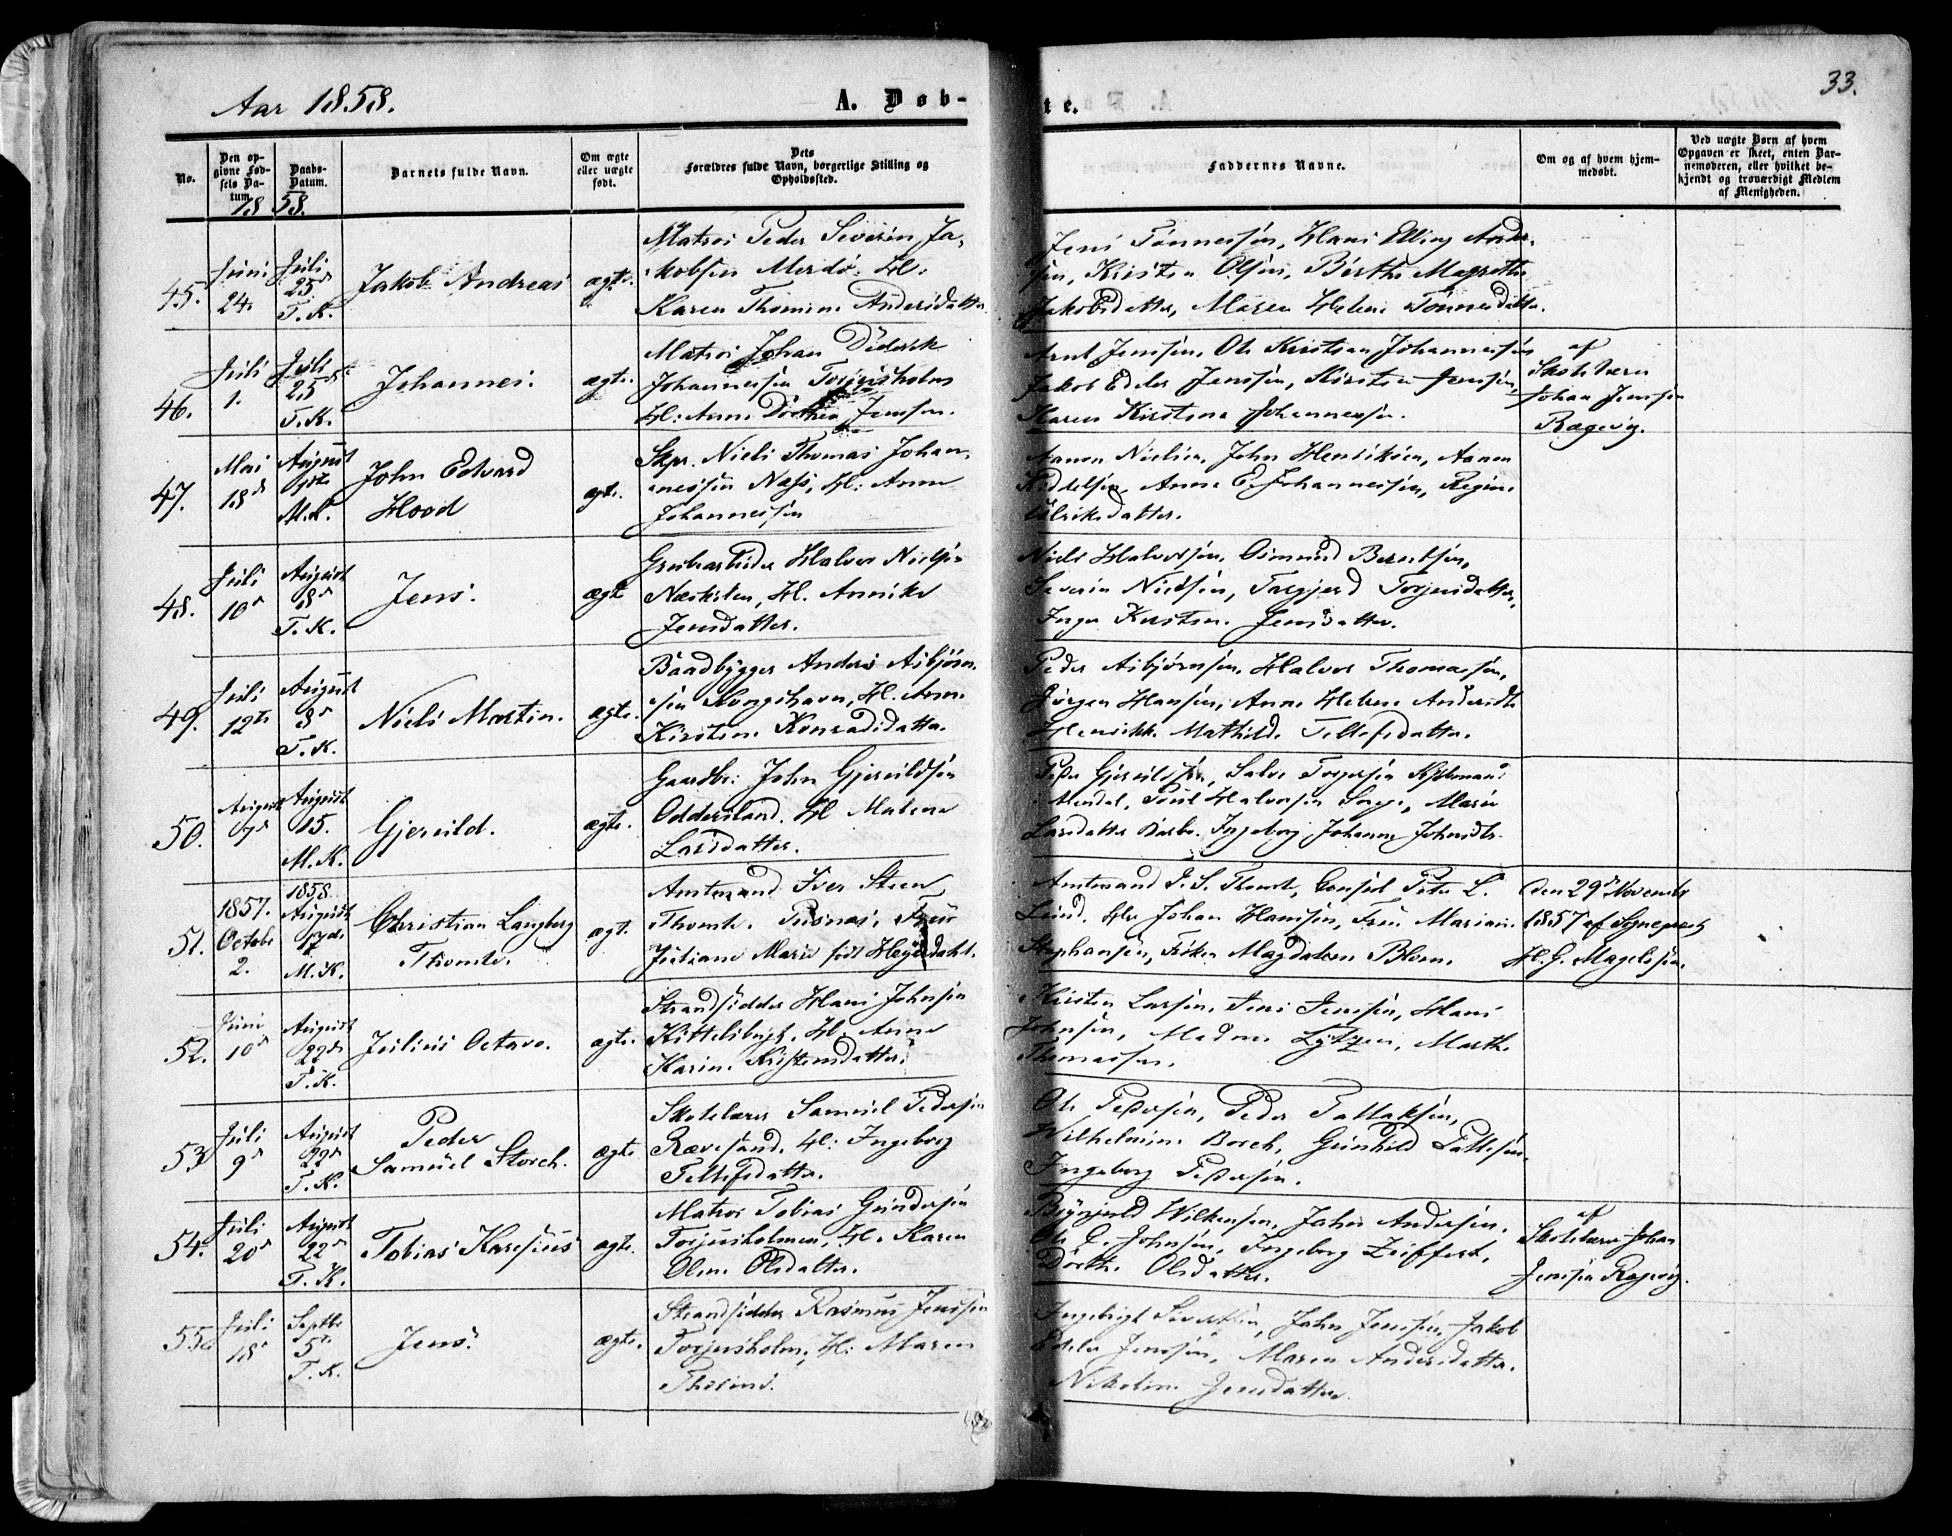 33.
Aar 1858.
A. Døb-
te.
No.
Den op-
givne Fød-
sels Da-
tum.
Daabs-
Datum.
Barnets fulde Navn.
Om ægte
eller uægte
født.
Dets
Forældres fulde Navn, borgerlige Stilling og
Opholdssted.
Faddernes Navne.
Om og af hvem hjem-
medøbt.
Ved uægte Børn af hvem
Opgaven er skeet, enten Bar-
nemoderen, eller hvilket be-
kjendt og troværdigt Medlem
af Menigheden.
1858.
45.
Juni
24.
Juli
25d
T.K.
Jakob Andreas
ægte.
Matros Peder Severin Ja-
kobsen Merdø. H:
Karen Thomine Andersdatter
Jens Tønnessen, Hans Elling Ander-
sen, Kristen Olsen, Birthe Magrethe
Jakobsdatter, Maren Helene Tønnesdatter.
46.
Juli
1.
Juli
25d
T.K.
Johannes.
ægte.
Matros Johan Diderik
Johannessen Torjusholm
H: Anne Dorthea Jensen.
Arnt Jenssen, Ole Kristian Johannessen
Jakob Edler Jenssen, Kirsten Jenssen,
Karen Kirstine Johannessen.
af
Skolelærer
Johan Jenssen
Ragevig.
47.
Mai
18d
August
1ste
M.K.
John Edvard
Hood
ægte.
Skpr. Niels Thomas Johan-
nessen Næss, H: Anne
Johannessen
Aanon Nielsen, John Henriksen, Aanon
Kittelsen, Anne E. Johannessen, Regine
Ulriksdatter.
48.
Juli
10d
August
8d
T.K.
Jens.
ægte
Grubearbeider Halvor Nielsen
Næskilen, H. Annike
Jensdatter.
Niels Halvorsen, Osmund Berntsen,
Severin Nielsen, Targjerd Torjusdatter,
Inger Kirstine Jensdatter.
49.
Juli
12te
August
8d
T.K.
Niels Martin.
ægte.
Baadbygger Anders Asbjørn-
sen Kongshavn, H. Anne
Kirstine Konradsdatter.
Peder Asbjørnsen, Halvor Thomassen,
Jørgen Hansen, Anne Helene Andersdtr
Henrikke Mathilde Tellefsdatter.
50.
August
7d
August
15.
M.K.
Gjeruld.
ægte.
Gaardbr: John Gjeruldsen
Oddersland. H Malene
Larsdatter.
Peder Gjeruldsen, Salve Torgersen
Poul Halvorsen Songe, Maren
Larsdatter Ingeborg Johanne Johnsdtr.
51.
1857.
Octobr
2.
1858.
August
17de
M.K.
Christian Langberg
Thomle.
ægt.
Amtmand Iver Steen
Thomle. Frue
Juliane Marie født Heyerdahl.
Amtmand I. S. Thomle, Consul Peter L.
Lund, Hr Johan Hansen, Fru Mariane
Stephansen, Frøken Magdalene Blom.
den 29d November
1857 af Sognepræst
H. G. Magelssen.
52.
Juni
10d
August
22de
T.K.
Julius Octavo.
ægte.
Strandsidder Hans Johnsen
Kittelsbugt, H. Anne
Karine Kristensdatter.
Kristen Larsen, Jens Jenssen, Hans
Johnsen, Madme Lytzen, Marthe
Thomassen.
53
Juli
9d
August
22d
T.K.
Peder
Samuel Storch.
ægte
Skolelærer Samuel Pedersen
Revesand. H: Ingeborg
Tellefsdatter.
Ole Pedersen, Peder Tallaksen,
Wilhelmine Borch, Gunhild Tallefsen,
Ingeborg Pedersen.
54.
Juli
20d
August
22d
T.K.
Tobias Karesius
ægte.
Matros Tobias Gundersen
Torjusholmen, H. Karen
Oline Olsdatter.
Brynjuld Wilkensen, John Andersen,
Ole C. Johnsen, Ingeborg Zeiffert,
Dorthe Olsdatter.
af
Skolelærer Johan
Jenssen Ragevig.
55.
Juli
18d
Septbr
5te
T.K.
Jens.
ægte.
Strandsidder Rasmus Jenssen
Torjusholm, H: Maren
Thorine.
Ingebrigt Sivertsen, John Jenssen, Jakob
Edeler Jenssen, Maren Andersdatter.
Nikoline Jensdatter